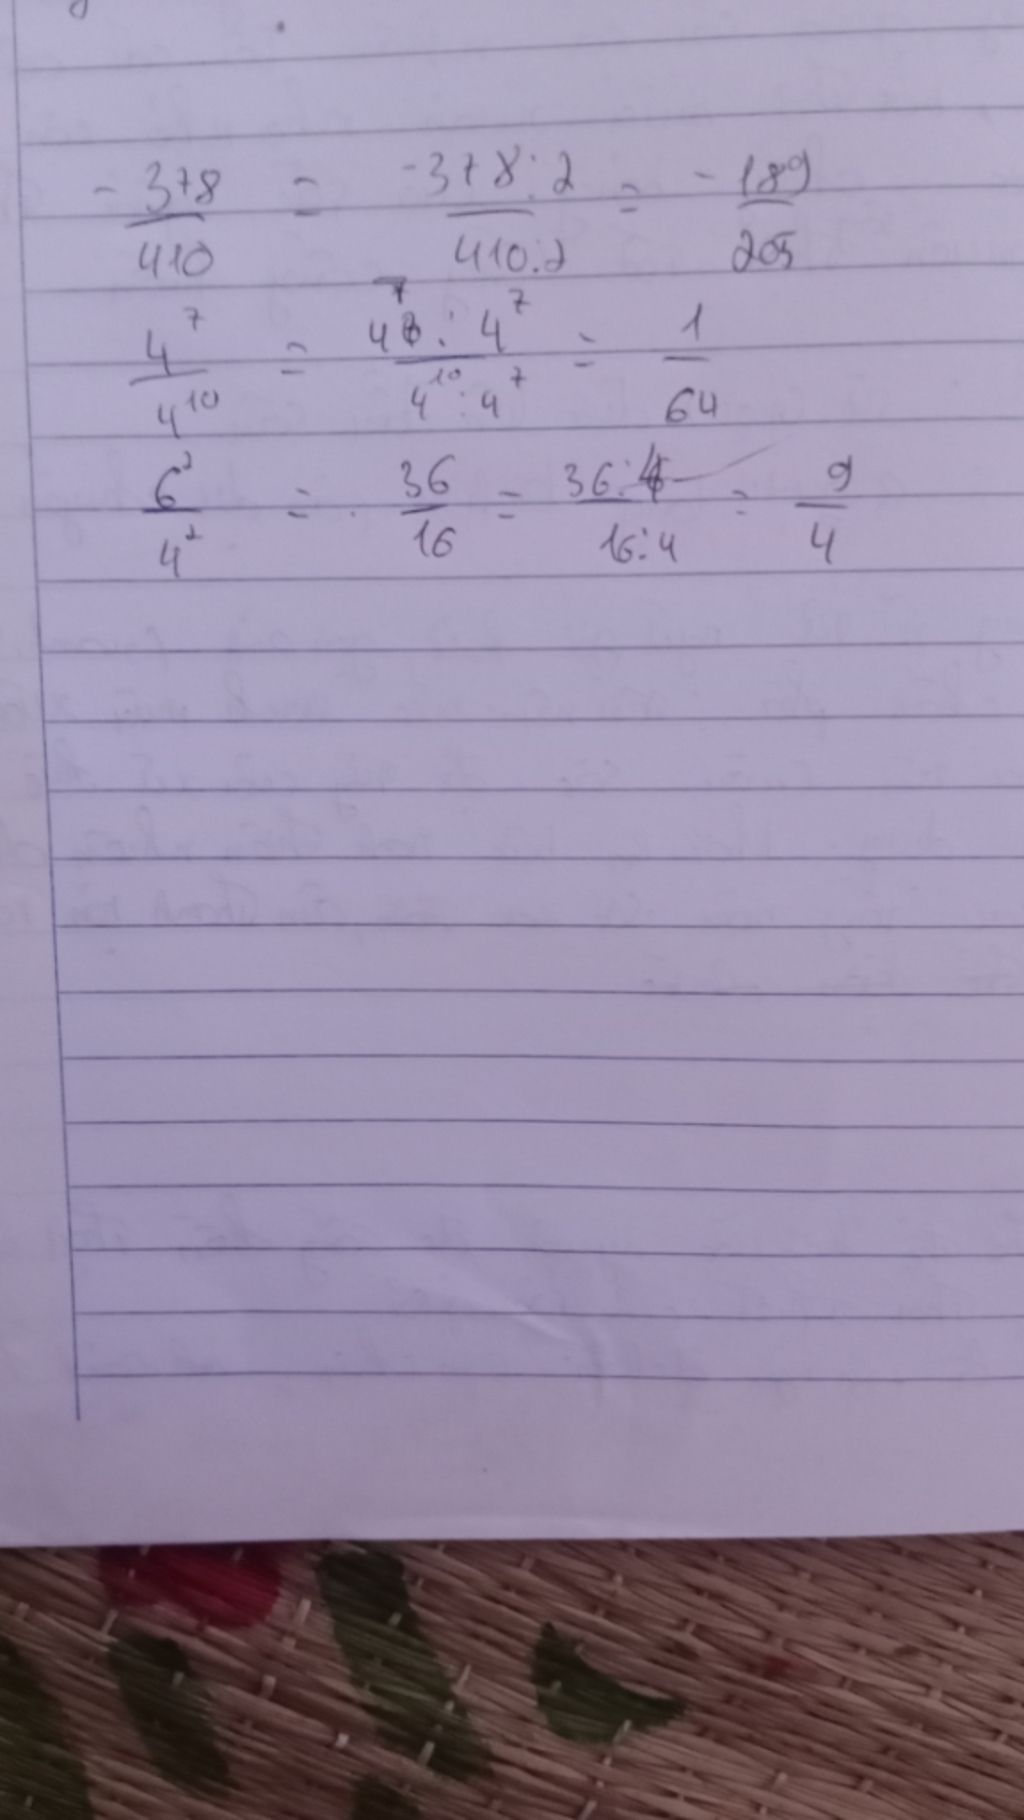 -378/410 = -378:2/410:2 = -189/205
4^7/4^10 = 4^7:4^7/4^10:4^7 = 1/64
6^2/4^2 = 36/16 = 36:4/16:4 = 9/4